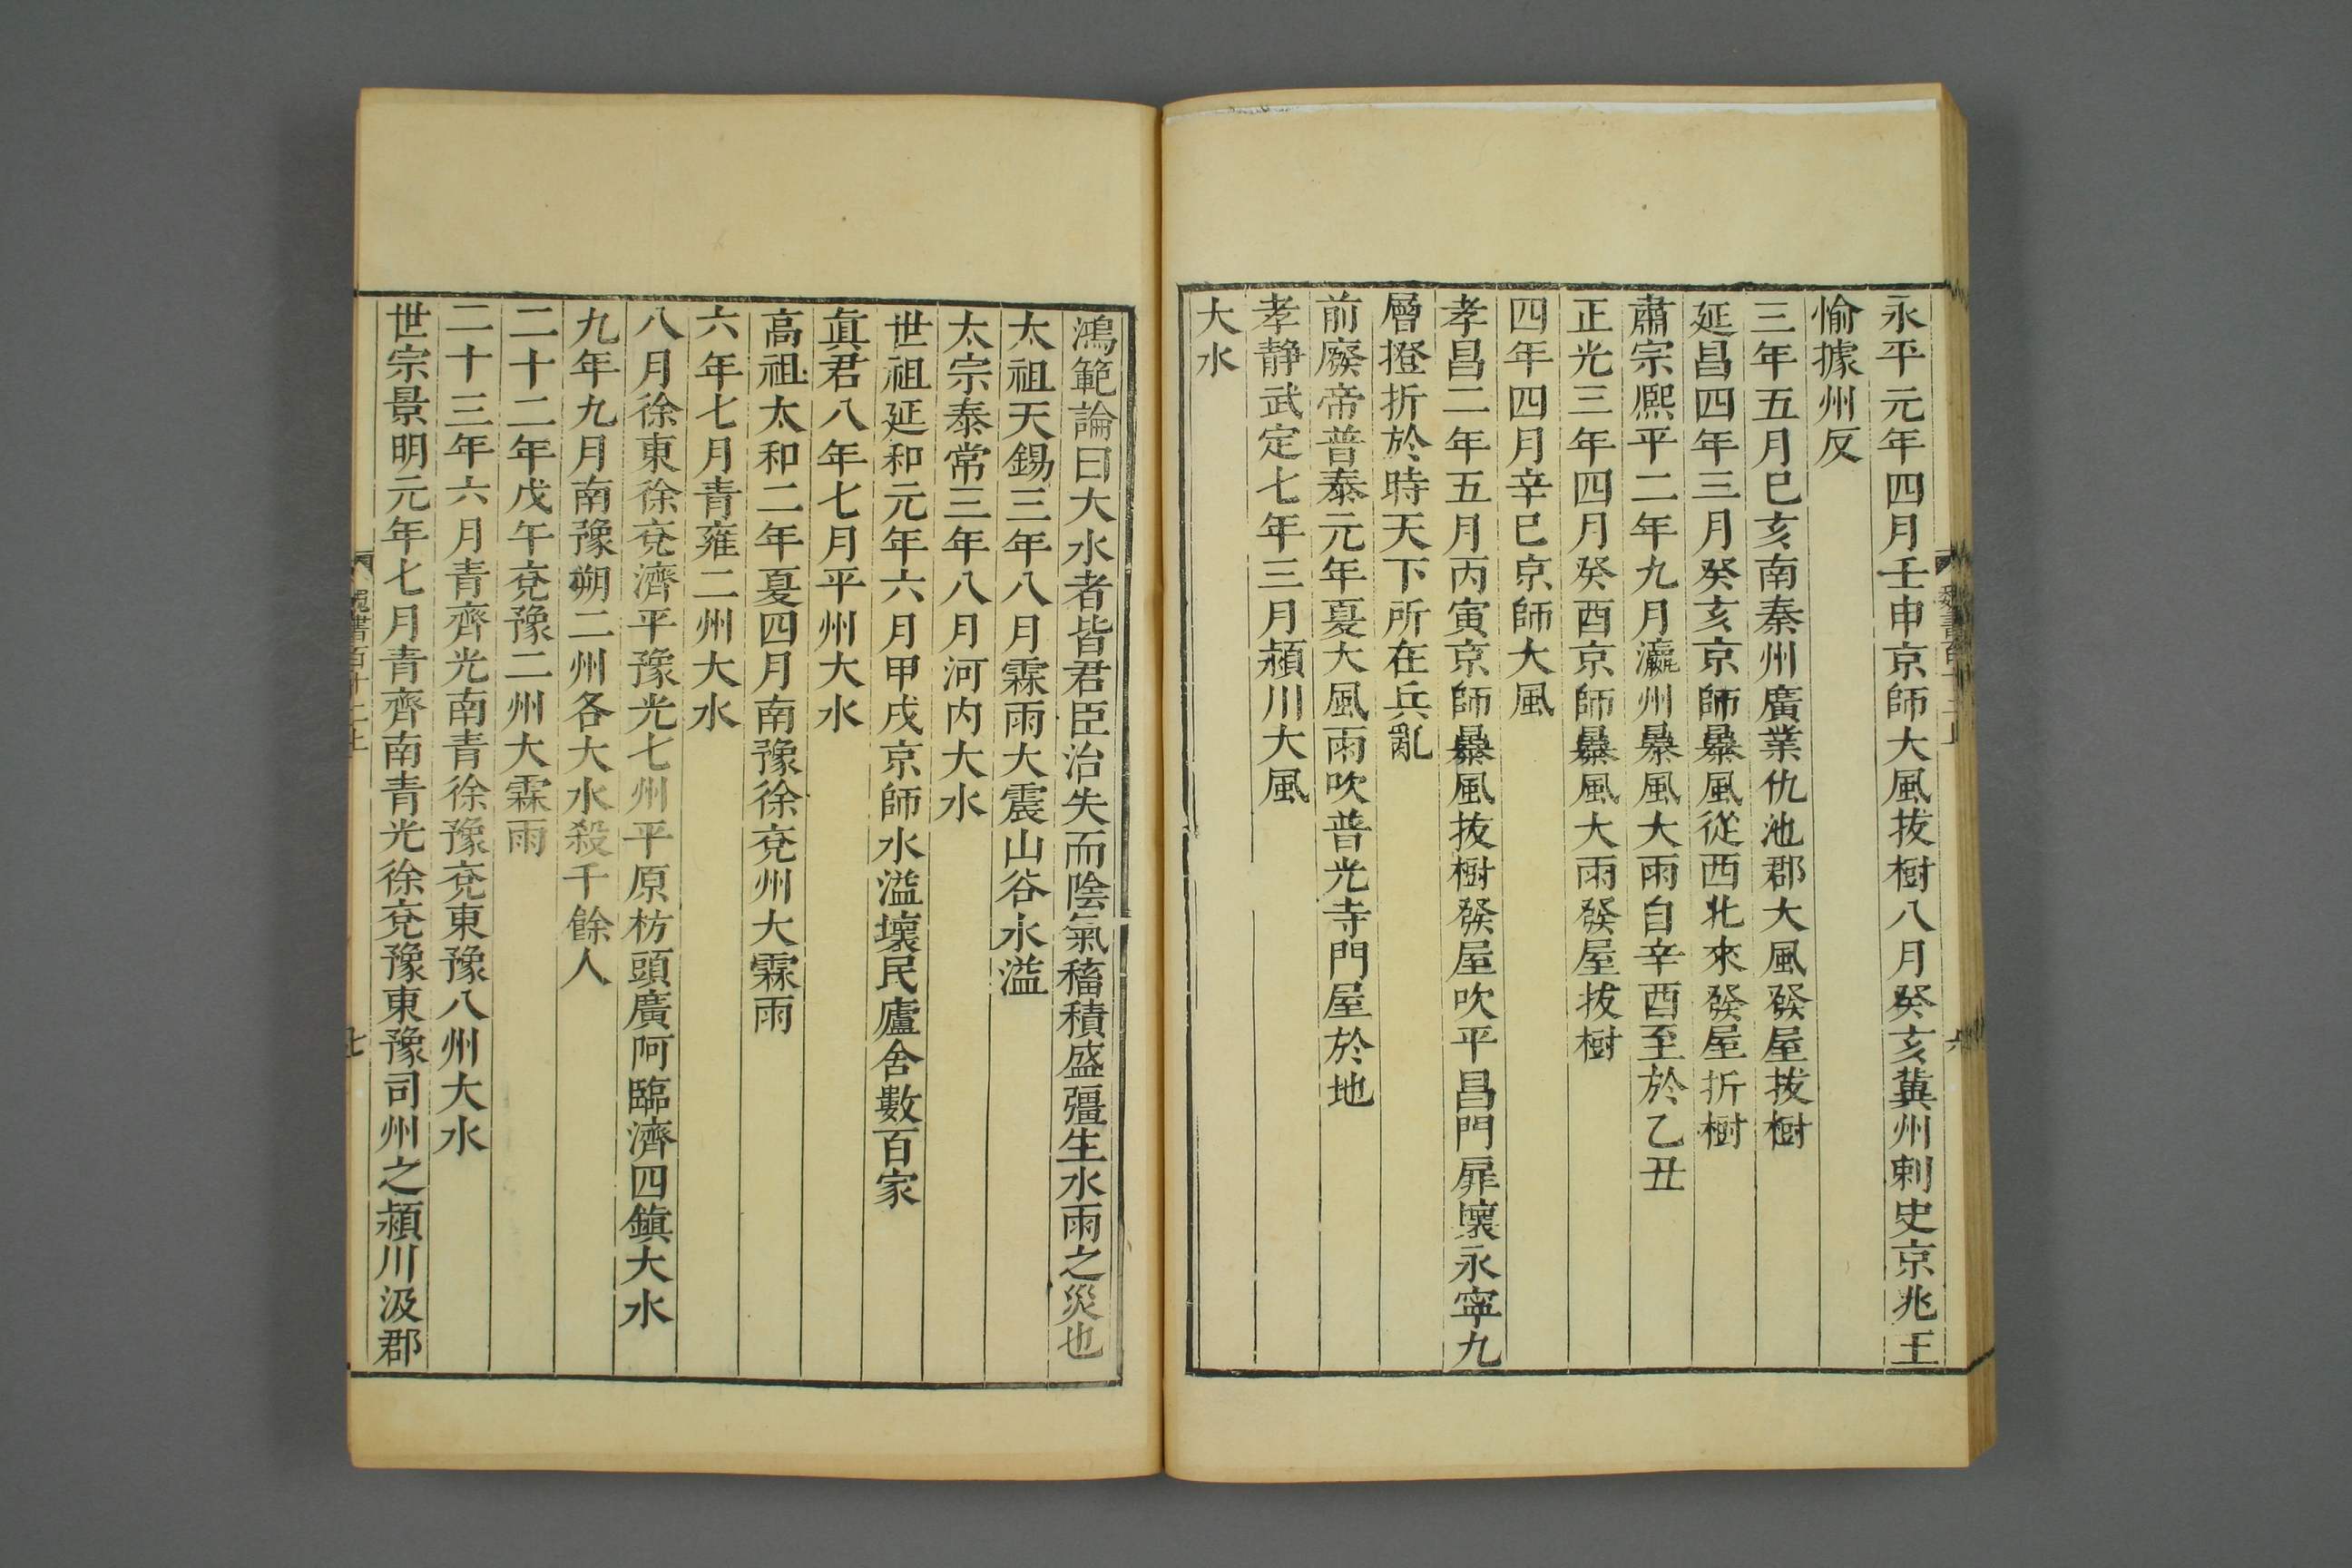 永平元年四月壬申京師大風拔樹八月癸亥冀州刺史京兆王
愉據州反
三年五月巳亥南秦州廣業仇池郡大風發屋拔樹
延昌四年三月癸亥京師暴風從西北來發屋折樹
肅宗熙平二年九月瀛州暴風大雨自辛酉至於乙丑
正光三年四月癸酉京師暴風大雨發屋拔樹
四年四月辛巳京師大風
孝昌二年五月丙寅京師暴風拔樹發屋吹平昌門扉壞永寧九
層撜折於時天下所在兵亂
前廢帝普泰元年夏大風雨吹普光寺門屋於地
孝静武定七年三月潁川大風
大水
鴻範論曰大水者皆君臣治失而陰氣穡積盛彊生水雨之災也
太祖天錫三年八月霖雨大震山谷水溢
太宗泰常三年八月河内大水
世祖延和元年六月甲戌京師水溢壞民廬舍數百家
眞君八年七月平州大水
高祖太和二年夏四月南豫徐兗州大霖雨
六年七月青雍二州大水
八月徐東徐兗濟平豫光七州平原枋頭廣阿臨濟四鎮大水
九年九月南豫朔二州各大水殺千餘人
二十二年戊午兗豫二州大霖雨
二十三年六月青齊光南青徐豫兗東豫八州大水
世宗景明元年七月青齊南青光徐兗豫東豫司州之潁川汲郡
魏書百十二上
七